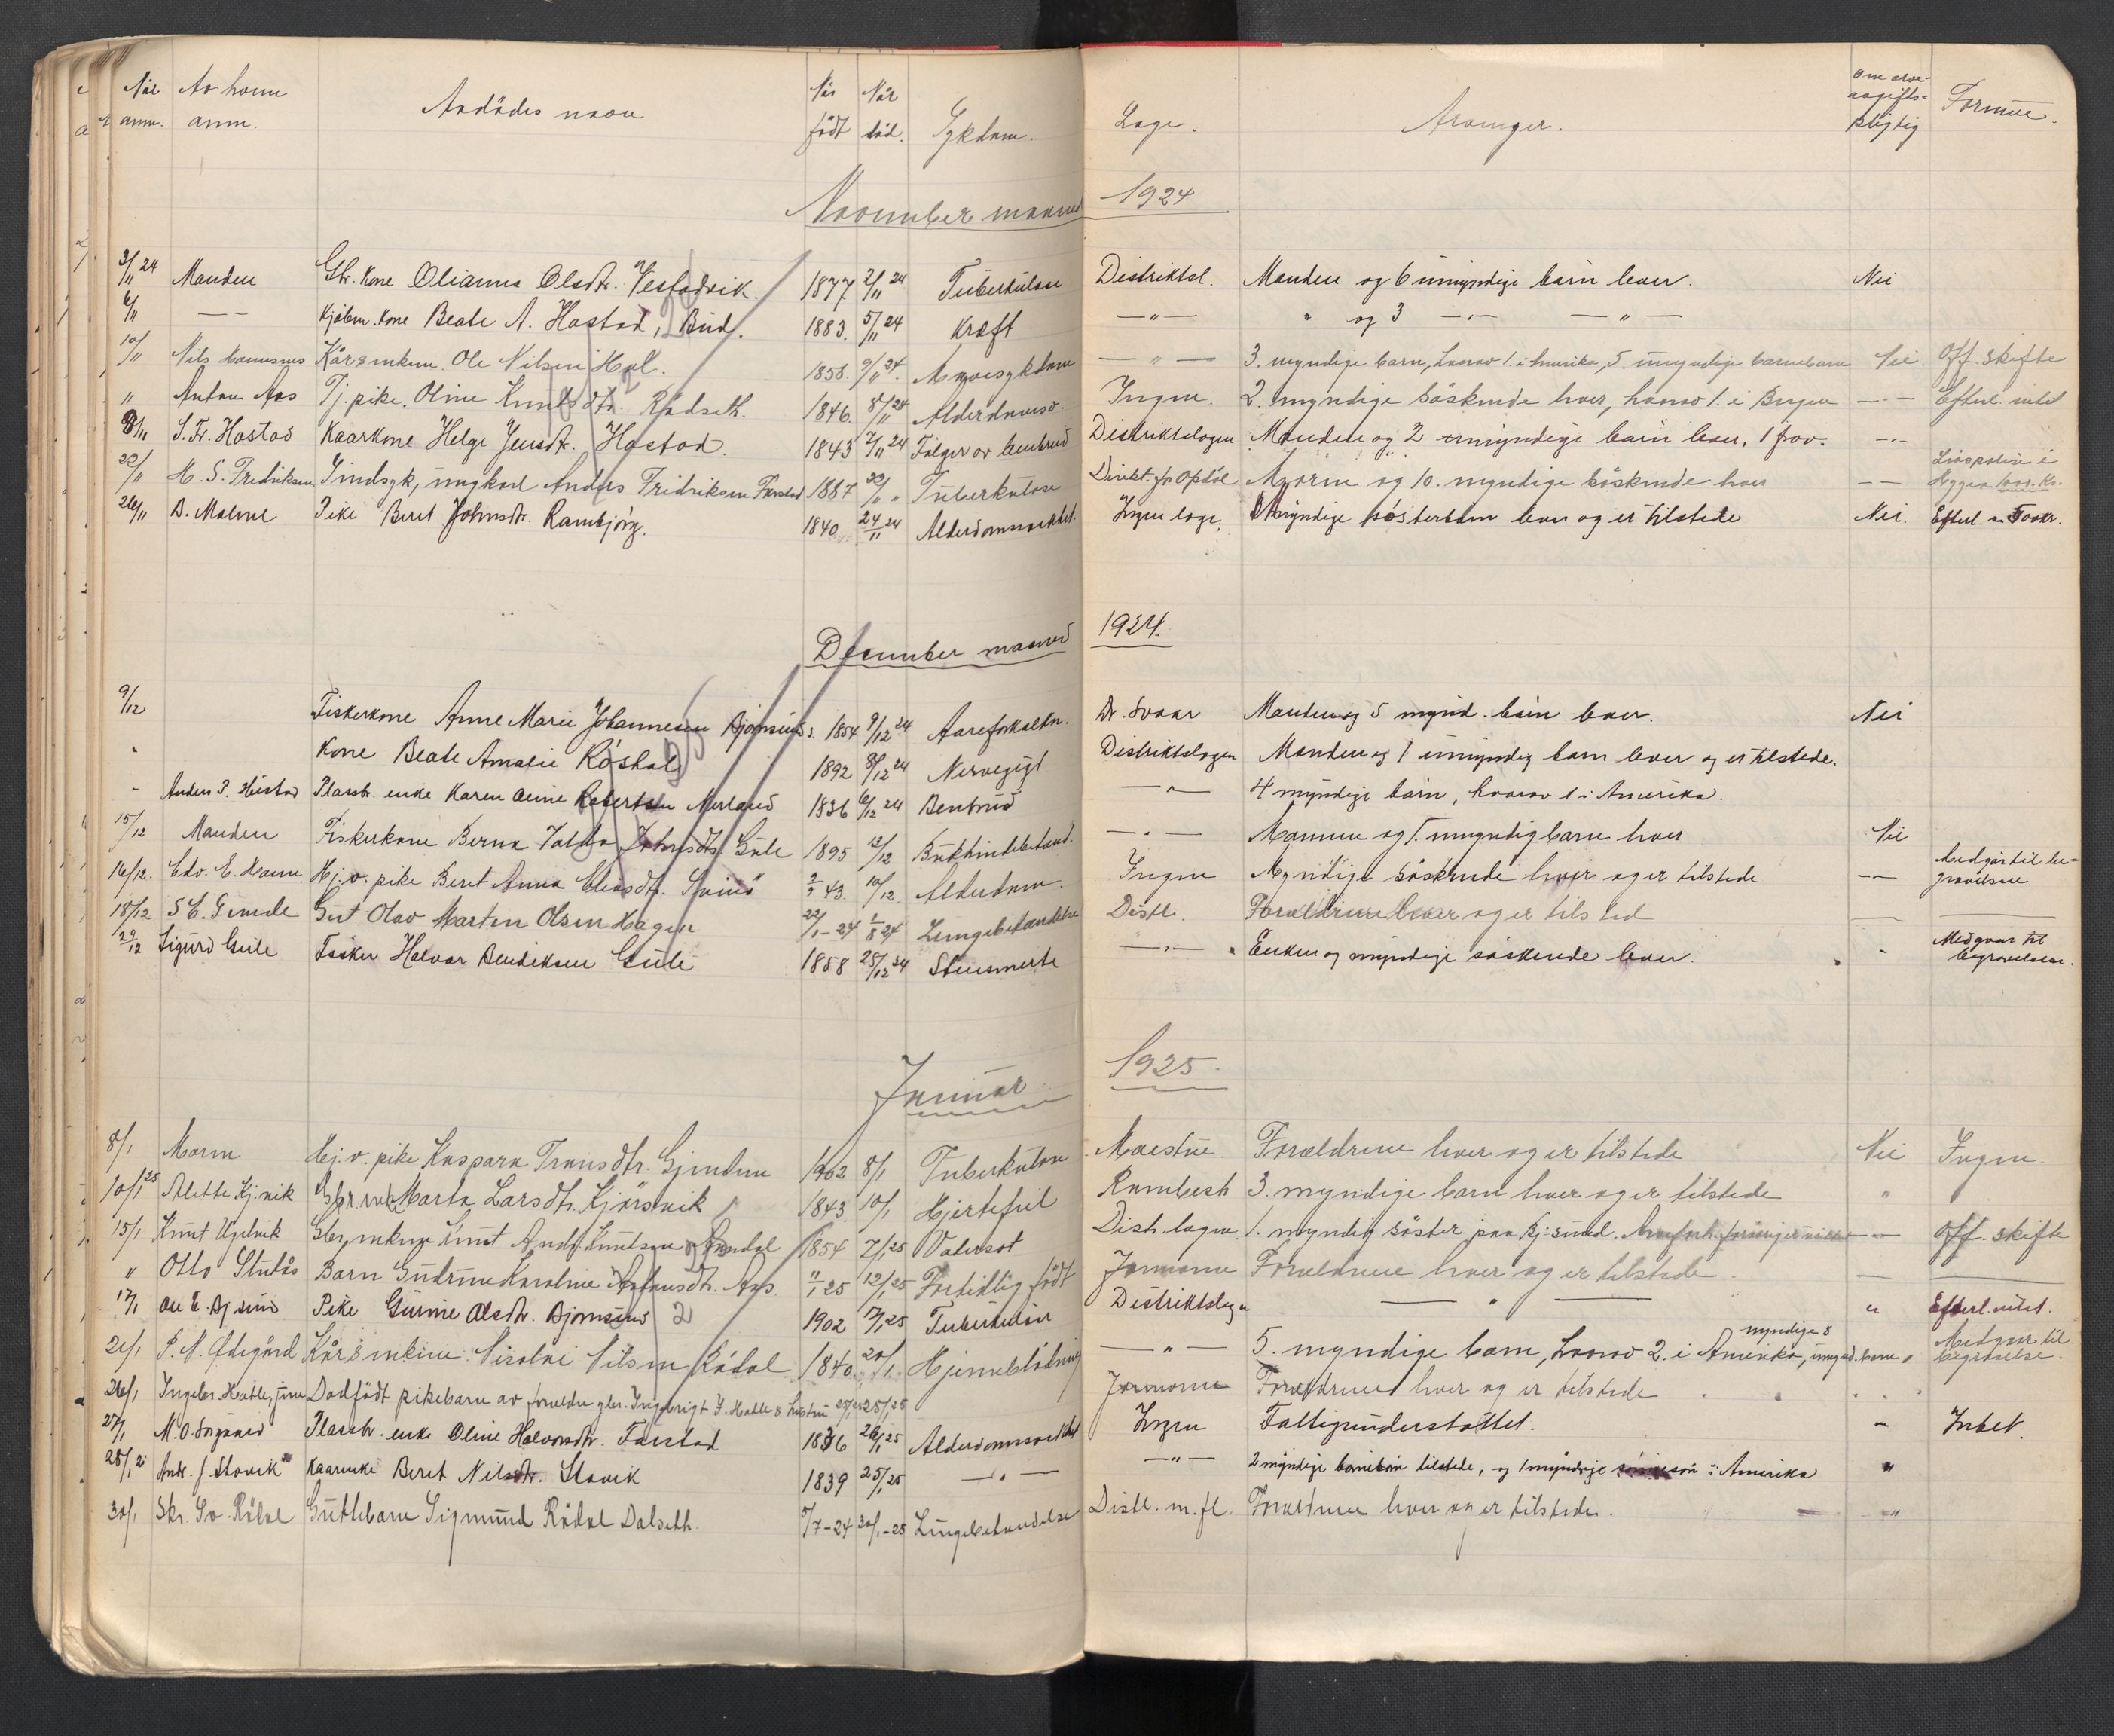 Når anm. Av hvem anm. Avdødes navn Når født Når død. Sykdom. Læge. Arvinger. Om arve-avgifts-pligtig Formue.
November maaned 1924
3/11 24 Manden Gbr. Kone Olianna Olsdtr. Vestadvik 1877 2/11 24 Tuberkulose Distriktsl. Manden og 6 umyndige barn lever. Nei
6/11 — — Kjøbm. Kone Beate A. Hostad, Bud. 1883. 5/11 24 Kræft — " — " og 3 — " — — " —
10/11 Nils Kårmkm. Ole Nilsen Hol. 1858. 9/11 24. — " — 3. myndige barn, hvorav 1. i Amerika, 5. umyndige barnebarn Nei. Off. skifte
" Anton Aas Tj. pike. Oline Knutsdtr. Rødseth. 1846. 8/11 24 Ingen. 2. myndige søskende lever, hvorav 1. i Bergen — " — Efterl. intet
8/11 S. Fr. Hostad Kaarkone Helge Jensdtr. Hostad. 1843 7/11 24 Følger av benbrud Distriktslægen Manden og 2 myndige barn lever, 1 frav. — " —
22/11 H. S. Fredriksen Sindsyk, ungkarl Anders Fridriksen Farstad 1887 22/11 " Tuberkulose Direkt. for Opdøl Moren og 10. myndige søskende lever — — Livspolise i Hygea
26/11 B. Malme Pike Beret Johnsdtr. Rambjørg. 1840 24/11 24 Alderdomssvakhet Ingen læge. Myndige søsterbarn lever og er tilstede Nei. Efterl.
December maaned 1924.
9/12 Fiskerkone Anne Marie Johannesen Bjørnsund s. 1854 9/12 24 Aareforkalkn. Dr. Svaar Manden og 5 mynd. barn lever. Nei
" Kone Beate Amalie Røshol 1892 8/12 24 Nervegigt Distriktslægen Manden og 1 umyndig barn lever og er tilstede.
" Anders P. Hustad Plassbr. enke Karen Oline Robertsen Nerland 1836 6/12 24 Benbrud — " — 4 myndige barn, hvorav 1 i Amerika.
15/12 Manden Fiskerkone Berna Johnsdtr. Gule 1895 12/12 Bukhindebetænd. — " — Mannen og 1. umyndig barn lever Nei
16/12. Edv. E. Havn Hj. v. pike Beret Anna Eliasdtr. Svinø 43. 10/12. Alderdom. Ingen Myndige søskende lever og er tilstede — — Medgår til begravelsen.
18/12 S E. Gimde Gut Olav Marten Olsen Hagen 22/1-24 Lungebetændelse Distl. Forældrene lever og er tilsted —
29/12 Sigurd Gule Fisker Halvor Bendiksen Gule 1858 25/12 24 Stensmerte — " — Enken og myndige søskende lever. " Medgaar til begravelsen.
Januar 1925.
8/1 Moren Hj. v. pike Kaspara Transdtr. Gjendem 1902 8/1 Tuberkulose Maestue. Forældrene lever og er tilstede Nei Ingen.
10/1 25 Alette Kj.vik Marta Larsdtr. Kjørsvik 1843. 10/1 Hjertefeil Rambesk 3. myndige barn lever og er tilstede "
15/1 Knut Ugelvik Gbr, enkem Knut Andr. Knutsen 1854 7/1 25 Vatersot Distr. lægen. 1. myndig søster paa Kj. sund. — " — Off. skifte
" Otto Stutås Barn Gudrun Karoline Antonsdtr. Aas. 11/1 25 12/1 25 Fortidlig født Jormoren Forældrene lever og er tilstede. — —
17/1 Ole E. Bj.sund Pike Gurine Olsdtr. Bjørnsund 2 1902 17/1 25 Tuberkulose Distriktslegen — " — " Efterl. intet.
21/1 P. N. Ødegård Kårenkem. Nicolai Nilsen Rødal 1840. 20/1. Hjerneblødning — " — 5. myndige barn, hvorav 2. i Amerika, myndige & umynd. barneb. " Medgår til begravelse.
26/1 Ingebr. Hatle, Dødfødt pikebarn av forældre gbr. Ingebrigt J. Hatle & hustru 25/1 25 Jormoren Forældrene lever og er tilstede . . .
27/1 M. O. Plassbr. enke Oline Halvorsdtr. Farstad 1836 26/1 25 Alderdomssvakhet Ingen Fattigunderstøttet. " Intet.
28/1 25 Andr. J. Stavik Kaarenke Beret Nilsdtr. Stavik 1839 25/1 25 — " — — " — 2 myndige barnebarn tilstede, og 1 myndige søn i Amerika "
30/1 Skr. Sv. Rødal Guttebarn Sigmund Rødal Dalseth. 5/7-24 30/1-25 Lungebetændelse Distl. m. fl. Forældrene lever og er tilstede. — "